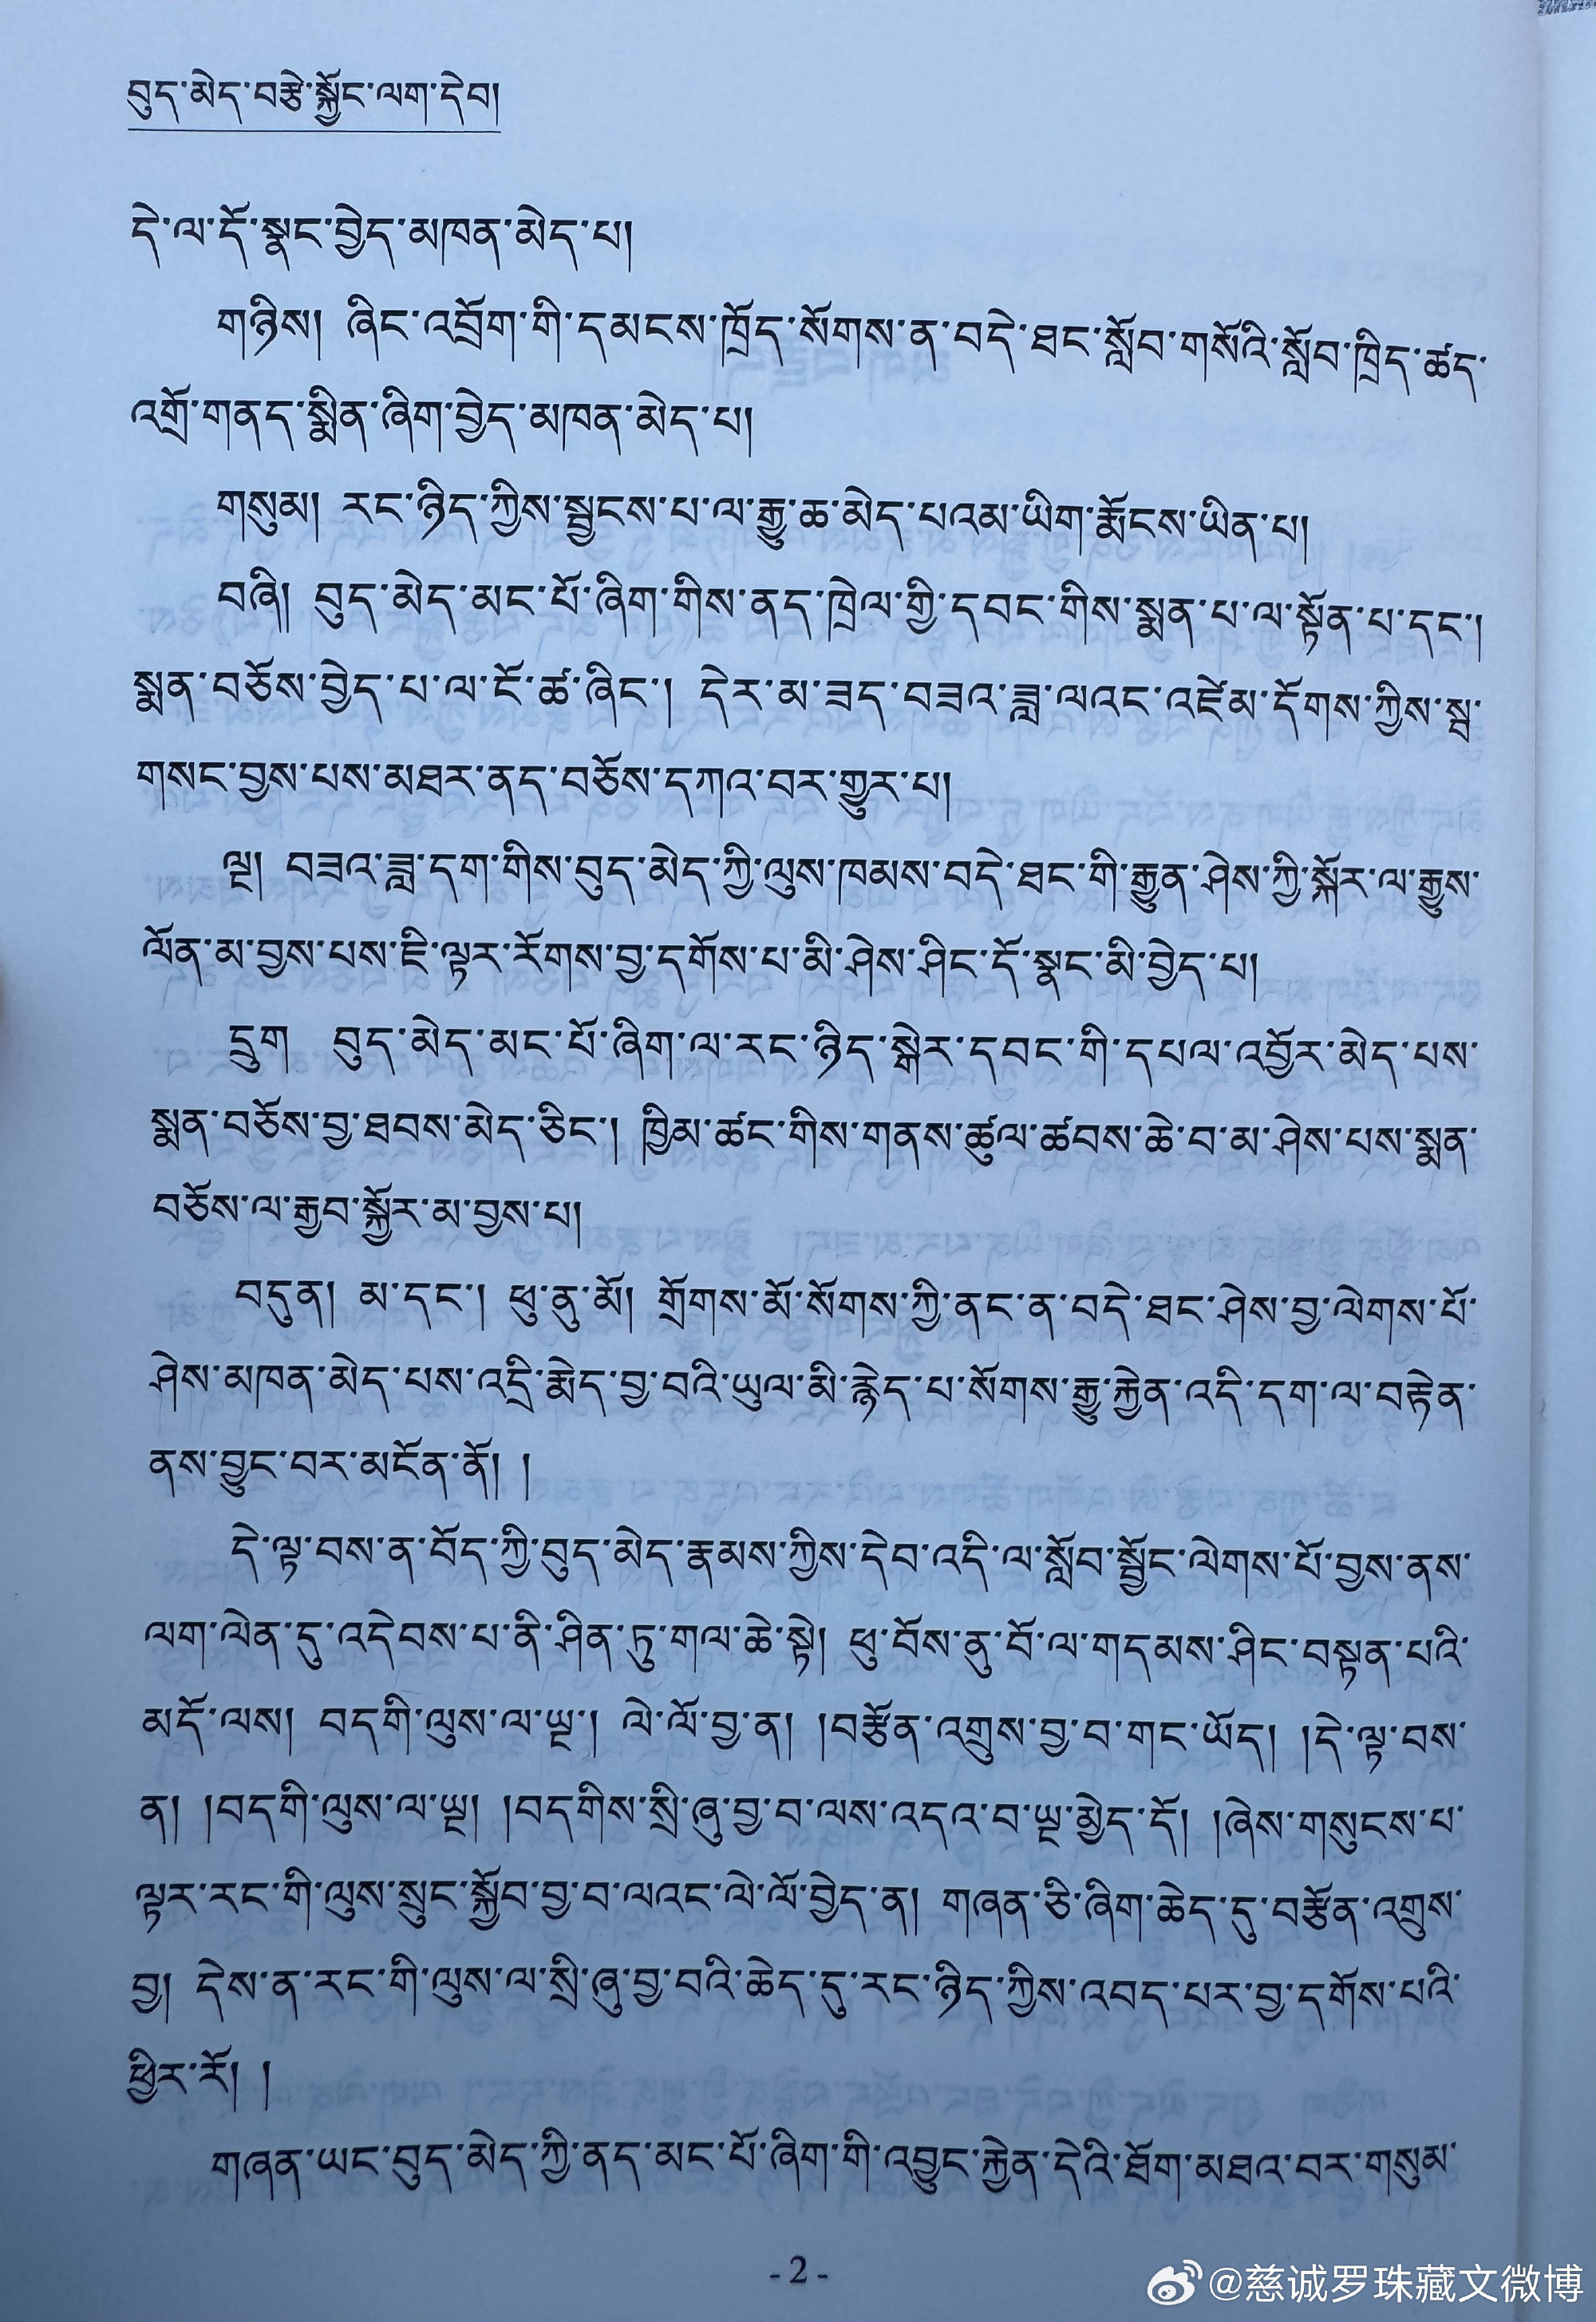 བུད་མེད་བརྩེ་སྐྱོང་ལག་དེབ།
དེ་ལ་དོ་སྣང་བྱེད་མཁན་མེད་པ།
གཉིས། ཞིང་འབྲོག་གི་དམངས་ཁྲོད་སོགས་ན་བདེ་ཐང་སློབ་གསོའི་སློབ་ཁྲིད་ཚད་
འགྲོ་གནད་སྨིན་ཞིག་བྱེད་མཁན་མེད་པ།
གསུམ། རང་ཉིད་ཀྱིས་སྦྱངས་པ་ལ་རྒྱུ་ཆ་མེད་པའམ་ཡིག་རྨོངས་ཡིན་པ།
བཞི། བུད་མེད་མང་པོ་ཞིག་གིས་ནད་ཁྲེལ་གྱི་དབང་གིས་སྨན་པ་ལ་སྟོན་པ་དང་།
སྨན་བཅོས་བྱེད་པ་ལ་ངོ་ཚ་ཞིང་། དེར་མ་ཟད་བཟའ་ཟླ་ལའང་འཛེམ་དོགས་ཀྱིས་སྦ་
གསང་བྱས་པས་མཐར་ནད་བཅོས་དཀའ་བར་གྱུར་པ།
ལྔ། བཟའ་ཟླ་དག་གིས་བུད་མེད་ཀྱི་ལུས་ཁམས་བདེ་ཐང་གི་རྒྱུན་ཤེས་ཀྱི་སྐོར་ལ་རྒྱུས་
ལོན་མ་བྱས་པས་ཇི་ལྟར་རོགས་བྱ་དགོས་པ་མི་ཤེས་ཤིང་དོ་སྣང་མི་བྱེད་པ།
དྲུག བུད་མེད་མང་པོ་ཞིག་ལ་རང་ཉིད་སྒེར་དབང་གི་དཔལ་འབྱོར་མེད་པས་
སྨན་བཅོས་བྱ་ཐབས་མེད་ཅིང་། ཁྱིམ་ཚང་གིས་གནས་ཚུལ་ཚབས་ཆེ་བ་མ་ཤེས་པས་སྨན་
བཅོས་ལ་རྒྱབ་སྐྱོར་མ་བྱས་པ།
བདུན། མ་དང་། ཕུ་ནུ་མོ། གྲོགས་མོ་སོགས་ཀྱི་ནང་ན་བདེ་ཐང་ཤེས་བྱ་ལེགས་པོ་
ཤེས་མཁན་མེད་པས་འདྲི་རྨེད་བྱ་བའི་ཡུལ་མི་རྙེད་པ་སོགས་རྒྱུ་རྐྱེན་འདི་དག་ལ་བརྟེན་
ནས་བྱུང་བར་མངོན་ནོ། །
དེ་ལྟ་བས་ན་བོད་ཀྱི་བུད་མེད་རྣམས་ཀྱིས་དེབ་འདི་ལ་སློབ་སྦྱོང་ལེགས་པོ་བྱས་ནས་
ལག་ལེན་དུ་འདེབས་པ་ནི་ཤིན་ཏུ་གལ་ཆེ་སྟེ། ཕུ་བོས་ནུ་བོ་ལ་གདམས་ཤིང་བསྟན་པའི་
མདོ་ལས། བདགི་ལུས་ལ་ཡྔ་། ལེ་ལོ་བྱ་ན། །བརྩོན་འགྲུས་བྱ་བ་གང་ཡོད། །དེ་ལྟ་བས་
ན། །བདགི་ལུས་ལ་ཡྔ། །བདགིས་སྲི་ཞུ་བྱ་བ་ལས་འདའ་བ་ཡྔ་མྱེད་དོ། །ཞེས་གསུངས་པ་
ལྟར་རང་གི་ལུས་སྲུང་སྐྱོབ་བྱ་བ་ལའང་ལེ་ལོ་བྱེད་ན། གཞན་ཅི་ཞིག་ཆེད་དུ་བརྩོན་འགྲུས་
བྱ། དེས་ན་རང་གི་ལུས་ལ་སྲི་ཞུ་བྱ་བའི་ཆེད་དུ་རང་ཉིད་ཀྱིས་འབད་པར་བྱ་དགོས་པའི་
ཕྱིར་རོ། །
གཞན་ཡང་བུད་མེད་ཀྱི་ནད་མང་པོ་ཞིག་གི་འབྱུང་རྐྱེན་དེའི་ཐོག་མཐའ་བར་གསུམ་
- 2 -
@慈诚罗珠藏文微博